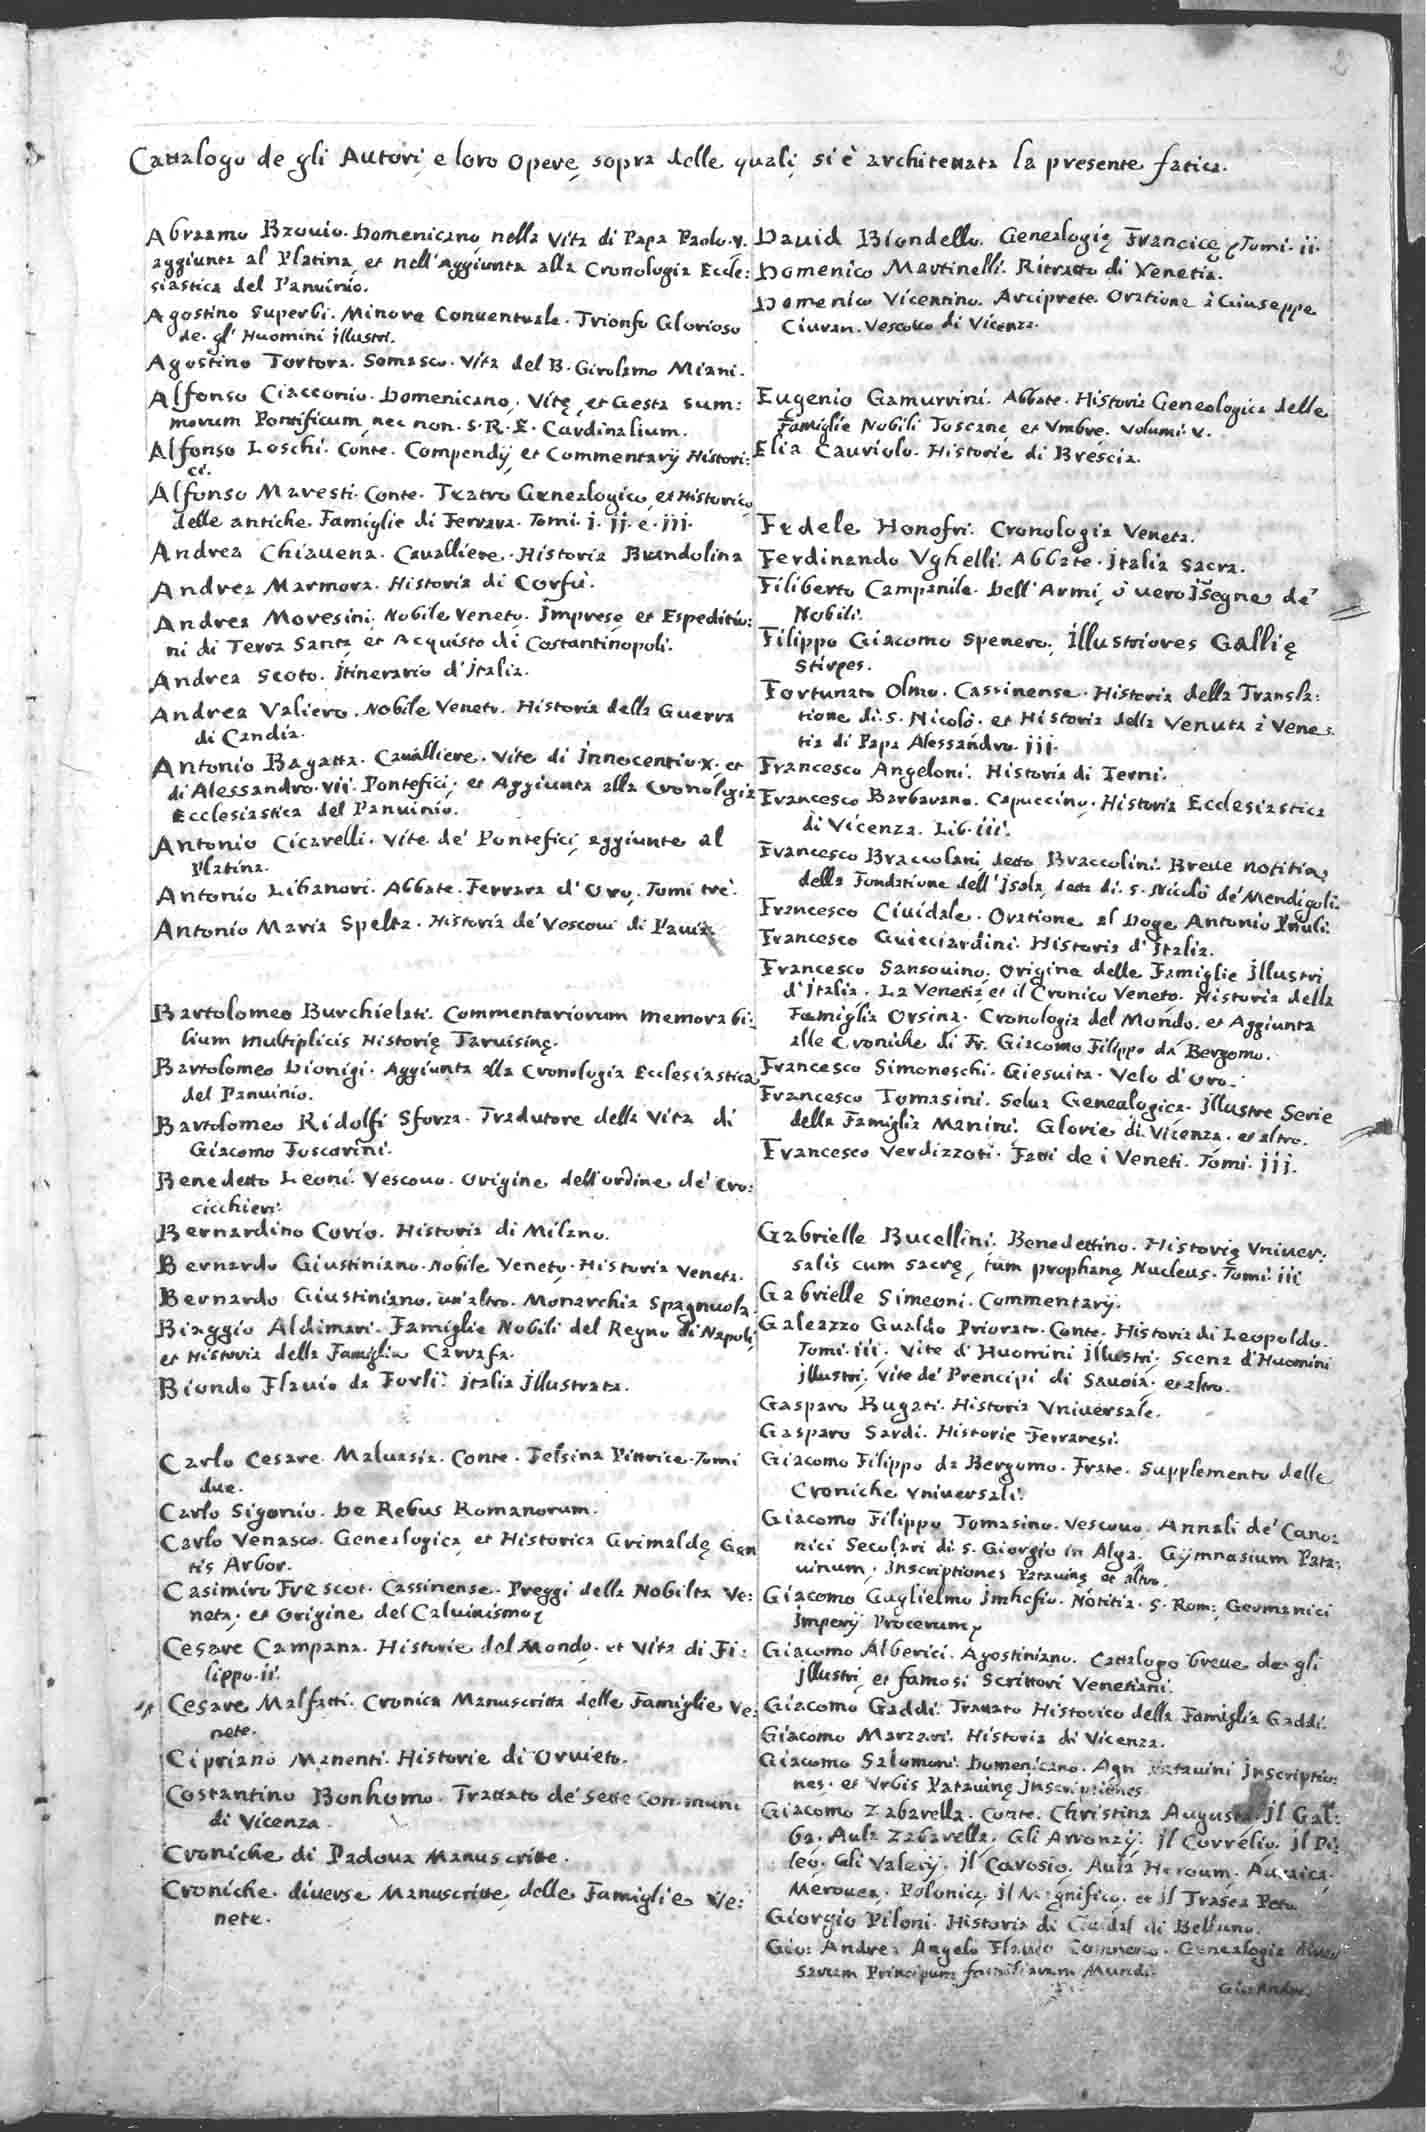 Cattalogo de gli Autori, e loro Opere, sopra delle quali, si è architettata la presente fatica.
Abraamo Bzouio. Domenicano, nella Vita di Papa Paolo. v.
aggiunta al Platina, et nell'Aggiunta alla Cronologia Eccle:
siastica del Panuinio.
Agostino Superbi. Minore Conuentuale. Trionfo Glorioso
de. gl' Huomini illustri.
Agostino Tortora. Somasco. Vita del B. Girolamo Miani.
Alfonso Ciacconio. Domenicano, Vitę, et Gesta sum:
morum Pontificum, nec non. S. R. E. Cardinalium.
Alfonso Loschi. Conte. Compendij, et Commentarij Histori:
ci.
Alfonso Maresti. Conte. Teatro Genealogico, et Historico,
delle antiche Famiglie di Ferrara. Tomi. j. jj. e. jij.
Andrea Chiauena. Caualliere. Historia Brandolina
Andrea Marmora. Historia di Corfù.
Andrea Moresini, Nobile Veneto. Imprese, et Espeditio:
ni di Terra Santa, et Acquisto di Costantinopoli.
Andrea Scoto. Itinerario d'Italia.
Andrea Valiero. Nobile Veneto. Historia della Guerra
di Candia.
Antonio Bagatta. Caualliere. Vite di Innocentio. x. et
di Alessandro. vii. Pontefici, et Aggiunta alla Cronolgia
Ecclesiastica del Panuinio.
Antonio Cicarelli. Vite de' Pontefici, aggiunte al
Platina.
Antonio Libanori. Abbate. Ferrara d'Oro, Tomi trè.
Antonio Maria Spelta. Historia de' Vescoui di Pauia.
Bartolomeo Burchielati. Commentariorum memorabi:
lium multiplicis Historię Taruisinę.
Bartolomeo Dionigi. Aggiunta alla Cronologia Ecclesiastica
del Panuinio.
Bartolomeo Ridolfi Sforza. Tradutore della Vita di
Giacomo Foscarini.
Benedetto Leoni. Vescouo. Origine dell'ordine de' Cro:
cicchieri.
Bernardino Corio. Historia di Milano.
Bernardo Giustiniano. Nobile Veneto. Historia Veneta.
Bernardo Giustiniano. un'altro. Monarchia Spagnuola.
Biaggio Aldimari. Famiglie Nobili del Regno di Napoli,
et Historia della Famiglia Carrafa.
Biondo Flauio da Forlì. Italia illustrata.
Carlo Cesare Maluasia. Conte. Felsina Pittrice. Tomi
due.
Carlo Sigonio. De Rebus Romanorum.
Carlo Venasco. Genealogica, et Historica Grimaldę Gen
tis Arbor.
Casimiro Frescot. Cassinense. Preggi della Nobilta Ve:
neta, et Origine del Caluinismo
Cesare Campana. Historie del Mondo. et Vita di Fi:
lippo. ii.
Cesare Malfatti. Cronica Manuscritta delle Famiglie Ve:
nete.
Cipriano Manenti. Historie di Oruieto.
Costantino Bonhomo. Trattato de' Sette Communi
di Vicenza.
Croniche di Padoua Manuscritte.
Croniche diuerse Manuscritte, delle Famiglie Ve:
nete.
Dauid Biondello. Genealogię Francicę Tomi. ii.
Domenico Martinelli. Ritratto di Venetia.
Domenico Vicentino. Arciprete. Oratione à Giuseppe
Ciuran. Vescouo di Vicenza.
Eugenio Gamurrini. Abbate. Historia Geneologica delle
Famiglie Nobili Toscane, et Vmbre. Volumi. v.
Elia Cauriolo. Historie di Brescia.
Fedele Honofri. Cronologia Veneta.
Ferdinando Vghelli. Abbate. Italia Sacra.
Filiberto Campanile. Dell'Armi, ò uero Isegne de'
Nobili.
Filippo Giacomo Spenero. Illustriores Gallię
Stirpes.
Fortunato Olmo. Cassinense. Historia della Transla:
tione di. S. Nicolò. et Historia della Venuta à Vene:
tia di Papa Alessandro. jij.
Francesco Angeloni. Historia di Terni.
Francesco Barbarano. Capuccino. Historia Ecclesiastica
di Vicenza. Lib. iii.
Francesco Braccolani, detto Braccolini. Breue notitia
della Fondatione dell'Isola, detta di. S. Nicolò de' Mendigoli.
Francesco Ciuidale. Oratione al Doge Antonio Priuli.
Francesco Guicciardini. Historia d'Italia.
Francesco Sansouino. Origine delle Famiglie illustri
d'Italia. La Venetia, et il Cronico Veneto. Historia della
Famiglia Orsina. Cronologia del Mondo. et Aggiunta
alle Croniche di Fr. Giacomo Filippo da Bergomo.
Francesco Simoneschi. Giesuita. Velo d'Oro.
Francesco Tomasini. Selua Genealogica. illustre Serie
della Famiglia Manini. Glorie di Vicenza. et altro.
Francesco Verdizzoti. Fatti de i Veneti. Tomi. jij.
Gabrielle Bucellini. Benedettino. Historię Vniuer:
salis cum sacrę, tum prophanę Nucleus. Tomi. iii
Gabrielle Simeoni. Commentarij.
Galeazzo Gualdo Priorato. Conte. Historia di Leopoldo.
Tomi. iii. Vite d'Huomini illustri. Scena d'Huomini
illustri, Vite de' Prencipi di Sauoia. et altro.
Gasparo Bugati. Historia Vniuersale.
Gasparo Sardi. Historie Ferraresi.
Giacomo Filippo da Bergomo. Frate. Supplemento delle
Croniche vniuersali.
Giacomo Filippo Tomasino. Vescouo. Annali de' Cano:
nici Secolari di. S. Giorgio in Alga. Gymnasium Pata:
uinum, Inscriptiones Patauinę, et altro.
Giacomo Guglielmo Imhofio. Notitia. S. Rom: Germanici
Imperij Procerum
Giacomo Alberici. Agostiniano. Cattalogo breue de gli
illustri, et famosi Scrittori Venetiani.
Giacomo Gaddi. Trattato Historico della Famiglia Gaddi.
Giacomo Marzari. Historia di Vicenza.
Giacomo Salomoni. Domenicano. Agri Patauini Inscriptio:
nes. et Vrbis Patauinę Inscriptiones
Giacomo Zabarella. Conte. Christina Augusta. il Gal:
ba. Aula Zabarella. Gli Arronzij. il Correlio. il Pi:
leo. Gli Valerij. il Carosio. Aula Heroum. Auraica.
Merouea. Polonica. il Magnifico. et il Trasea Peto.
Giorgio Piloni. Historia di Ciuidal di Belluno.
Gio: Andrea Angelo Flauio Comneno. Genealogia diuer
sarum Principum familiarum Mundi.
Gio: Andre.